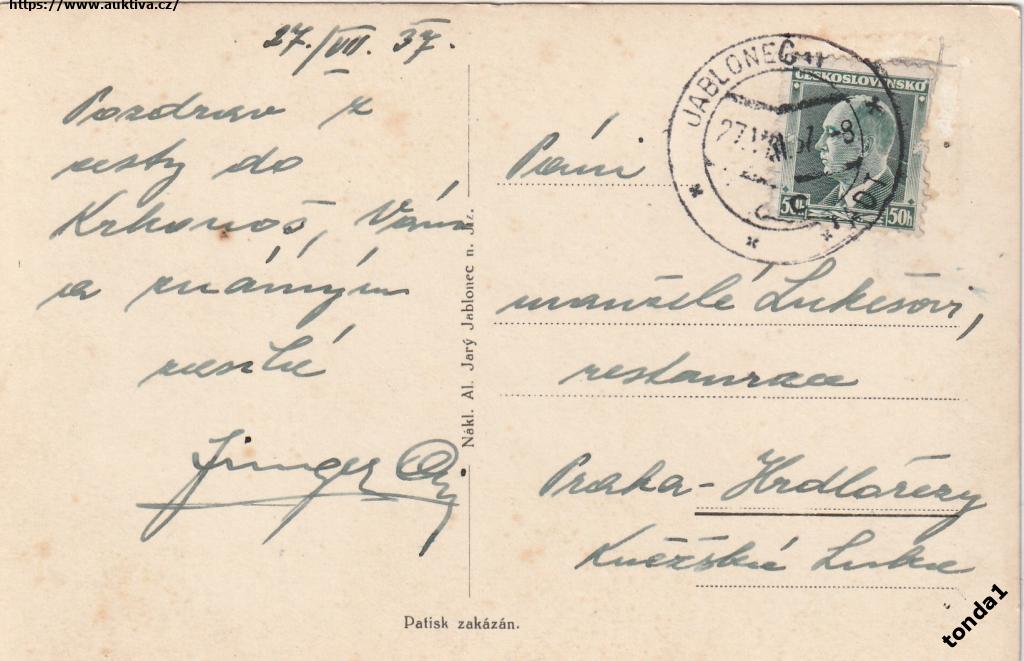 https://www.auktiva.cz/
27./VII. 37.
Pozdrav z
cesty do
Krkonoš, Vám
a známým
zasílá
Junger
Nákl. Al. Jarý Jablonec n. Jiz.
JABLONEC
27. VII. 37 -8
ČESKOSLOVENSKO
50h 50h
Páni
manželé Lukešovi,
restaurace
Praka - Hrdlořezy
Kněžská Luka
Patisk zakázán.
tonda1